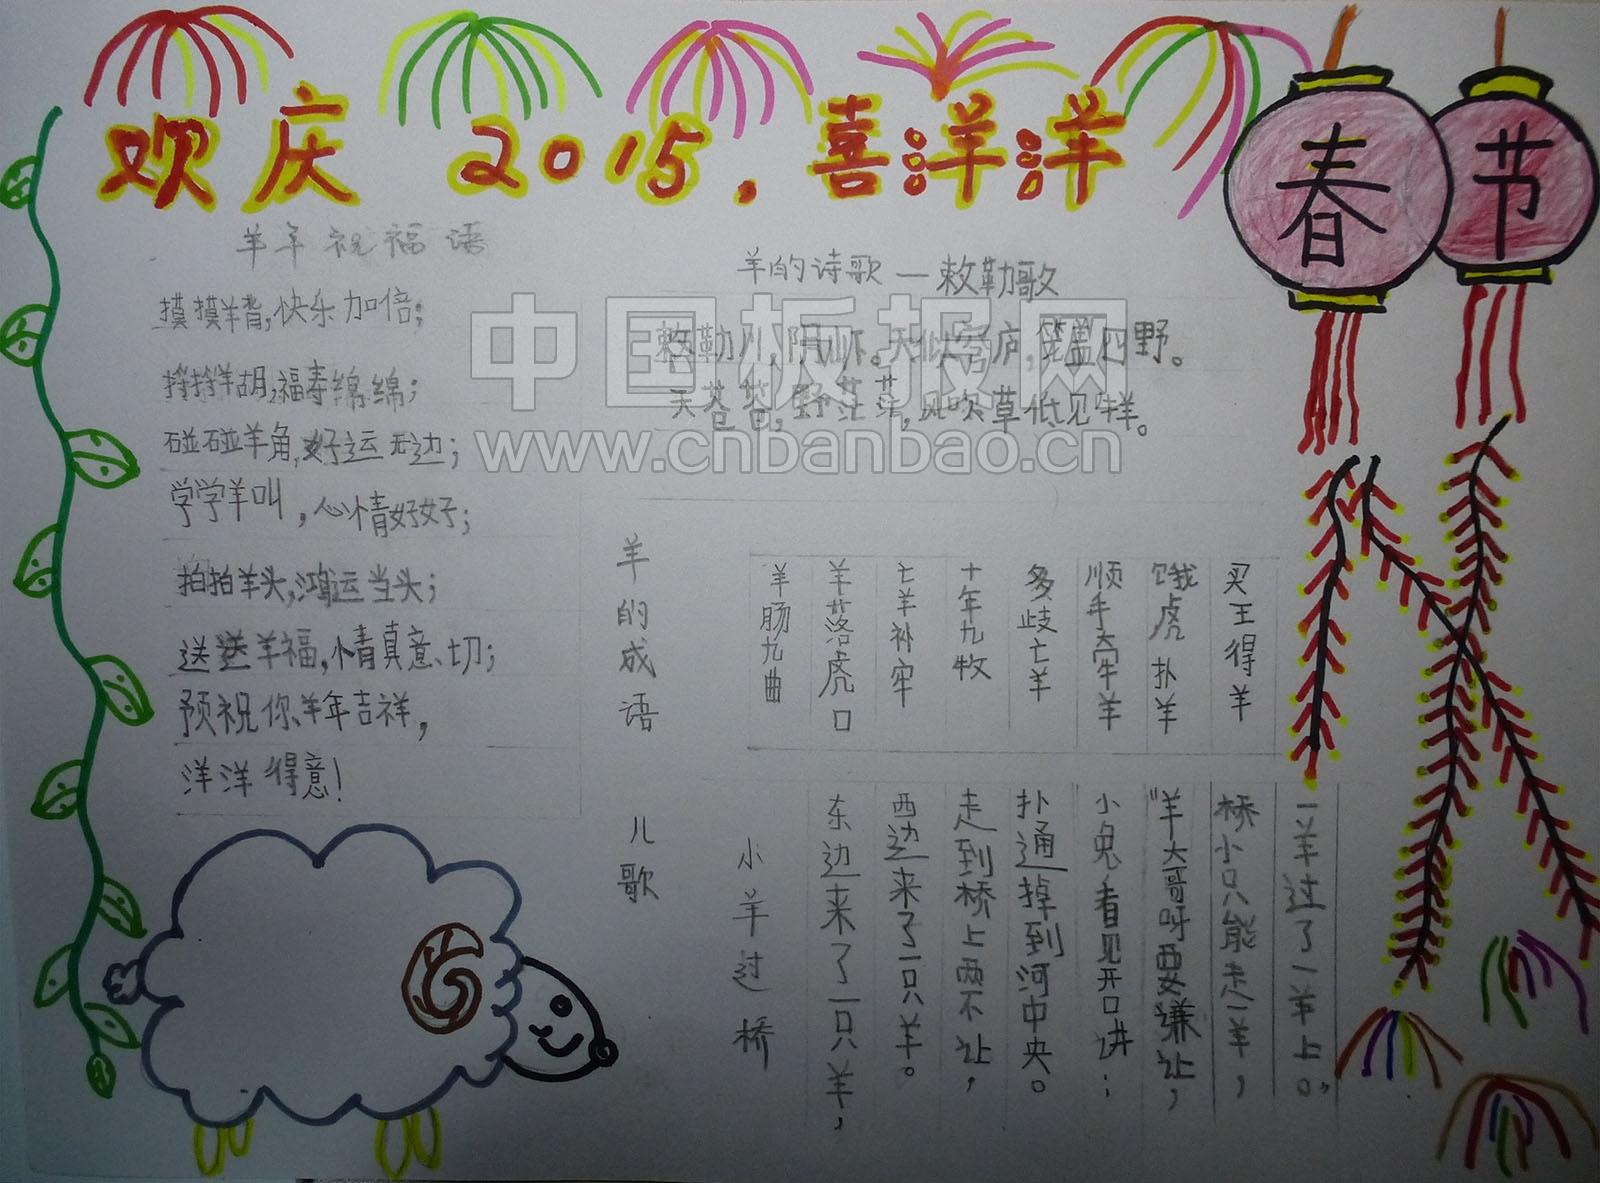 欢庆2015.喜洋洋
春节
羊年祝福语
摸摸羊背,快乐加倍;
捋捋羊胡,福寿绵绵;
碰碰羊角,好运无边;
学学羊叫,心情好好;
拍拍羊头,鸿运当头;
送送羊福,情真意切;
预祝你羊年吉祥,
洋洋得意!
羊的诗歌—敕勒歌
敕勒川,阴山下。天似穹庐,笼盖四野。
天苍苍,野茫茫,风吹草低见牛羊。
中国板报网
www.cnbanbao.cn
羊的成语
羊肠九曲
羊落虎口
亡羊补牢
十年九牧
多歧亡羊
顺手牵羊
饿虎扑羊
买王得羊
儿歌
小羊过桥
东边来了一只羊,
西边来了一只羊。
走到桥上两不让,
扑通掉到河中央。
小兔看见开口讲:
“羊大哥呀要谦让,
桥小只能走一羊,
一羊过了一羊上。”